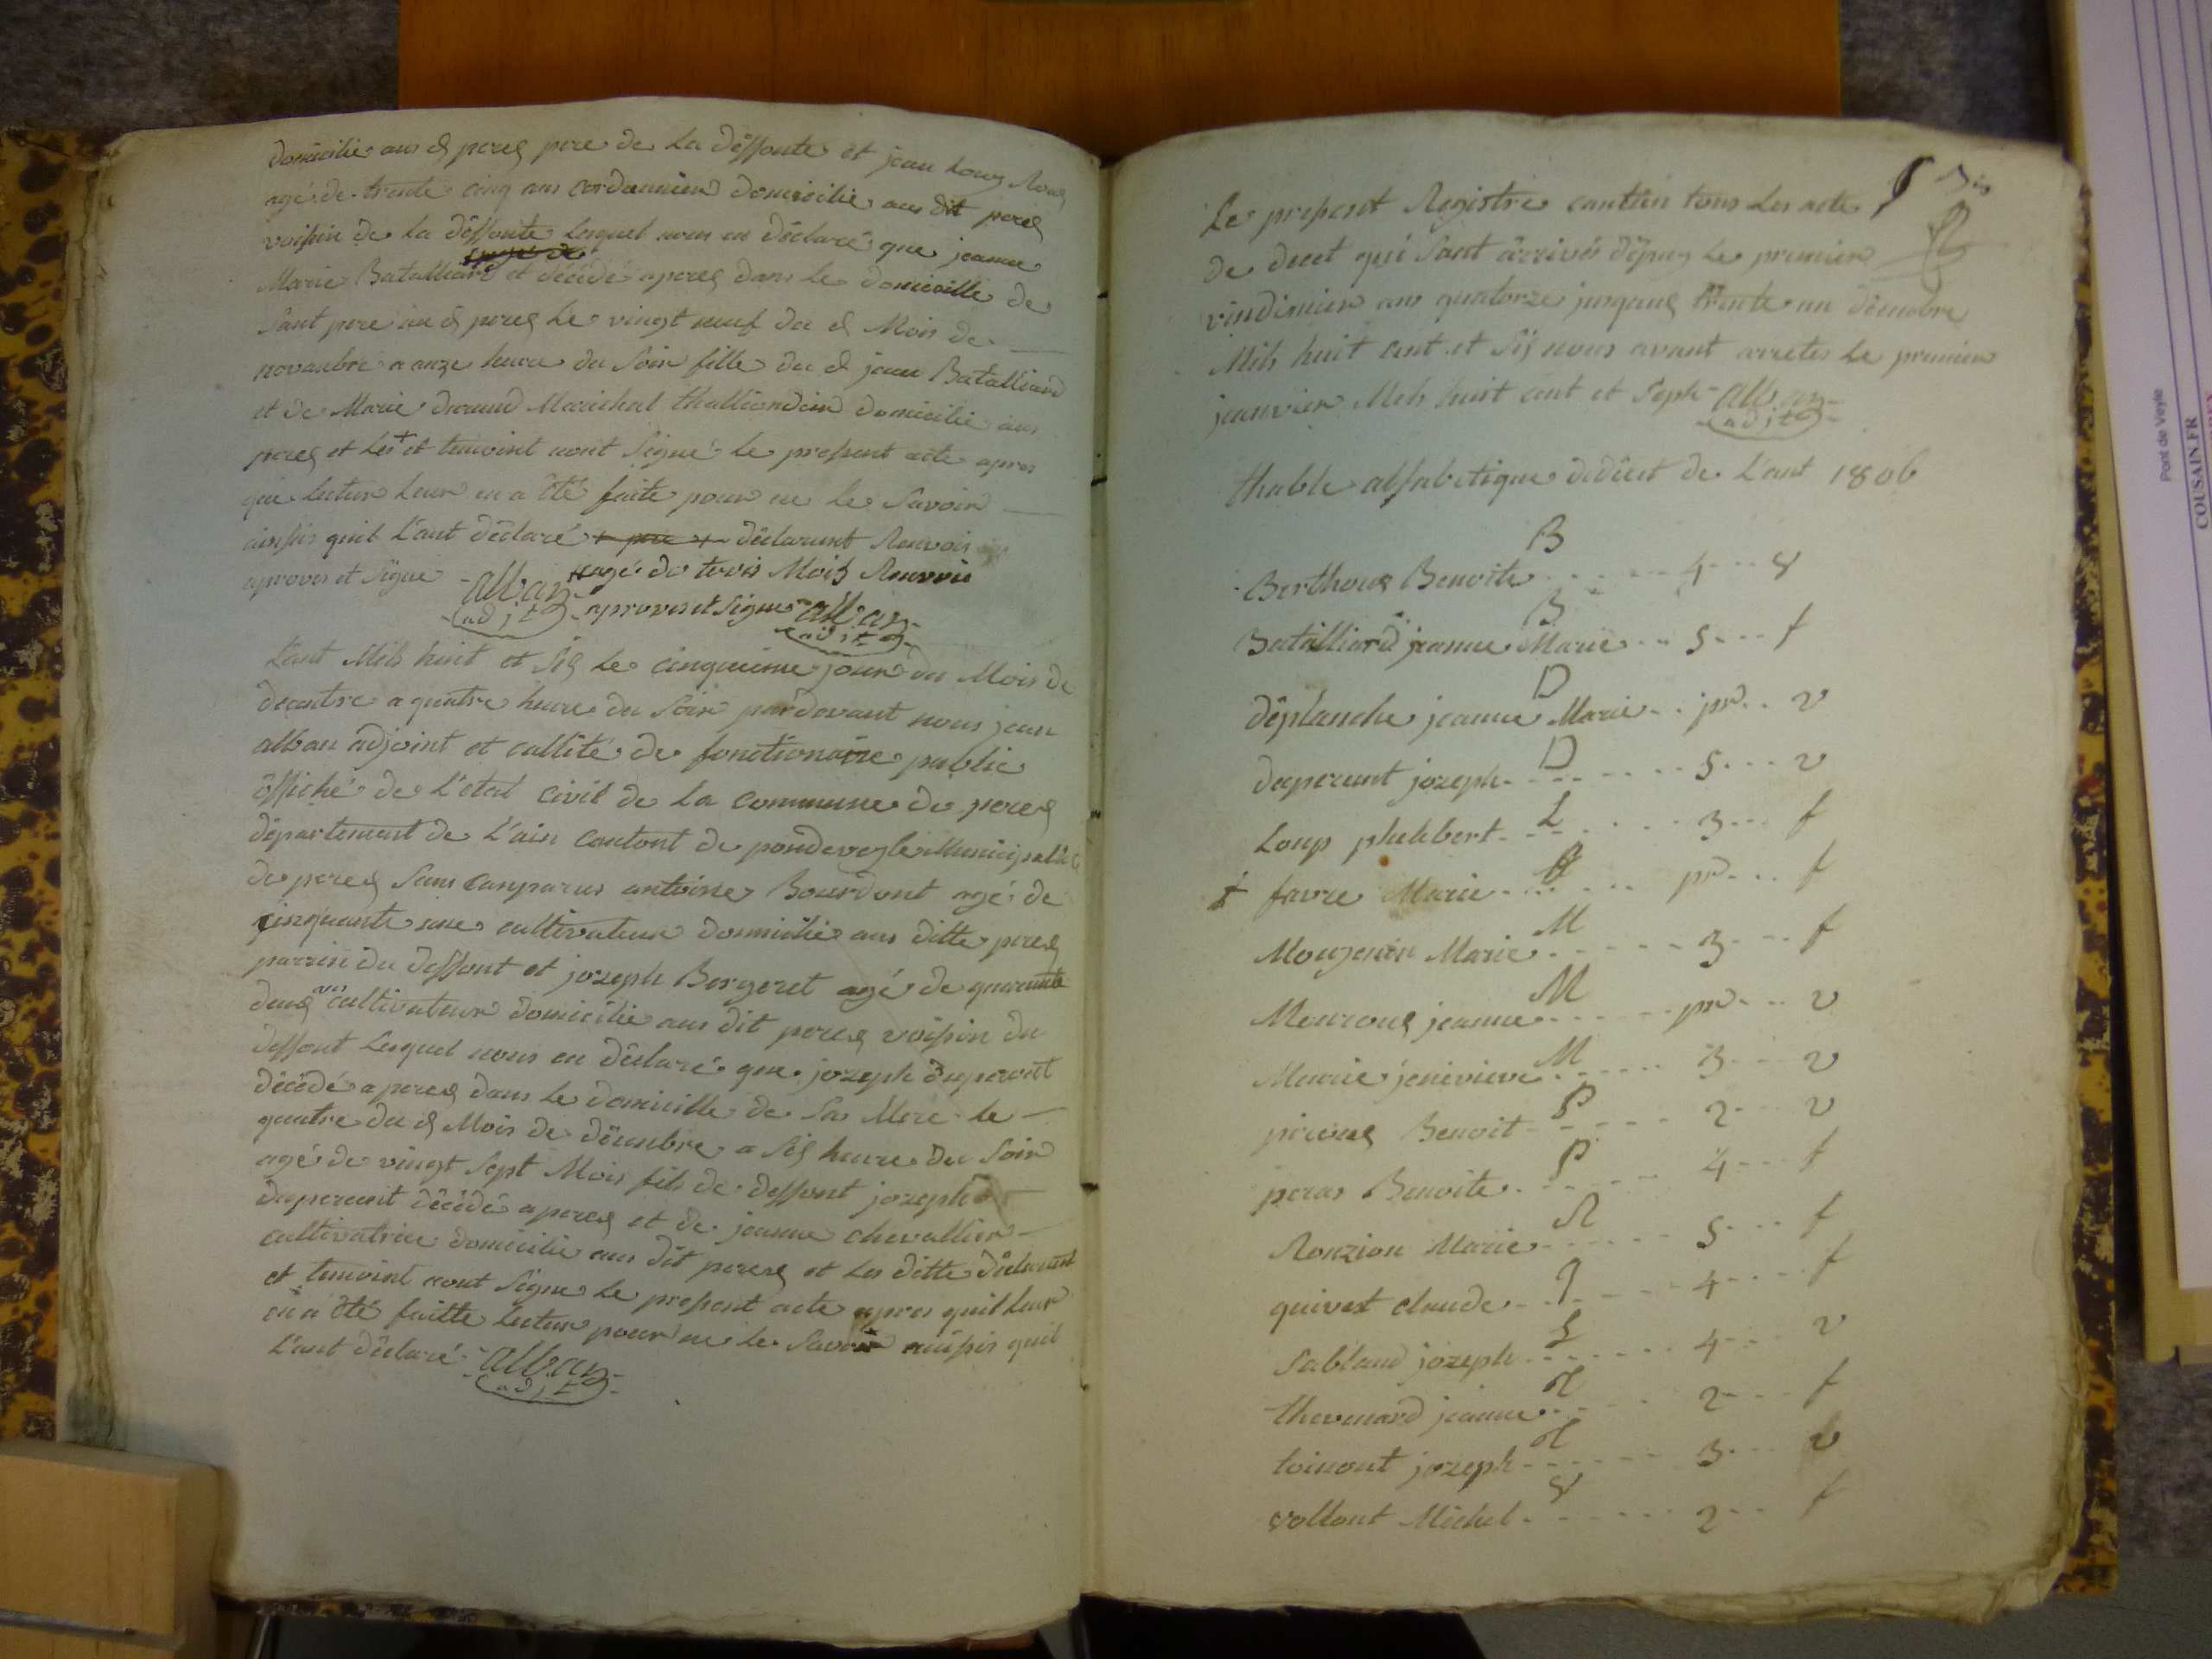 domicilie aus d perex pere de La deffonte et jean Louy Roux
agé de trente cinq ans Cordannier domicilie aus dit perex
voisin de La deffonte Lesquel nous on déclaré que jeanne
Marie Batalliard et décédé a perex dans le domicille de
Sant pere au d perex Le vingt neuf du d Mois de
novanbre a anze heure du Soir fille du d jean Batalliard
et de Marie durand Marichal thalliandier domicilie aus
perex et Les + et temoint nont Signé Le present acte apres
que Lectur Leur en a été faite pour ne Le Savoir
ainsis quil Lant déclaré + déclarant Ranvois
aprover et Signe alban adjt
agé de trois Mois Ranvoie
aprover et Signe alban adjt
Lant Mils huit et Six Le cinquieme jour du Mois de
decentre a quatre heure du Soir pardevant nous jean
alban adjoint et callité de fonctionaire public
offiché de L'étal civil de La Commune de perex
département de L'ain Cantont de pondeveyle Municipalité
de perex Sans Canparus antoine Bourdont agé de
cinquante une cultivateur domicilie aus ditte perex
parrin du deffont et jozeph Bergeret agé de quarante
deux ans cultivateur domicilie aus dit perex voisin du
deffont Lesquel nous on déclaré que jozeph duperout
décédé a perex dans Le domicille de Sa Mere Le
quatre du d Mois de décenbre a Six heure du Soir
agé de vingt Sept Mois fils de deffont jozeph
duperout décédé a perex et de jeanne chevallier
cultivatrice domicilie aus dit perex et Les ditte déclarant
et temoint nont Signe Le present acte apres quil Leur
en a été faitte Lectur pour ne Le Savoir ainsis quil
L'ant déclaré alban
adjt
Le present Registre cantien tous Les acte
de decet qui Sont arrivés dépuy Le premier
vindimier ans quatorze jusquaux trente un décenbre
Mils huit cent et Six nous avant arretes Le premier
jeanvier Mils huit cent et Sept alban
adjt
thable alfabetique dedécet de L'ant 1806
B
Berthoux Benoite 4 8
B
Batalliard jeanne Marie 5 f
D
déplanche jeanne Marie pr v
D
duperout jozeph 5 v
L
Loup philibert 3 f
favre Marie pr f
M
Monzenin Marie 3 f
M
Mouroux jeanne pr v
M
Marie jenivieve 3 v
P
piroux Benoit 2 v
P
peras Benoite 4 f
R
Ronzion Marie 5 f
q
quivet claude 4 f
S
Sabland jozeph 4 v
t
thevenard jeanne 2 f
t
toinont jozeph 3 v
v
vollont Michel 2 f
Pont de Veyle
COUSAIN.FR